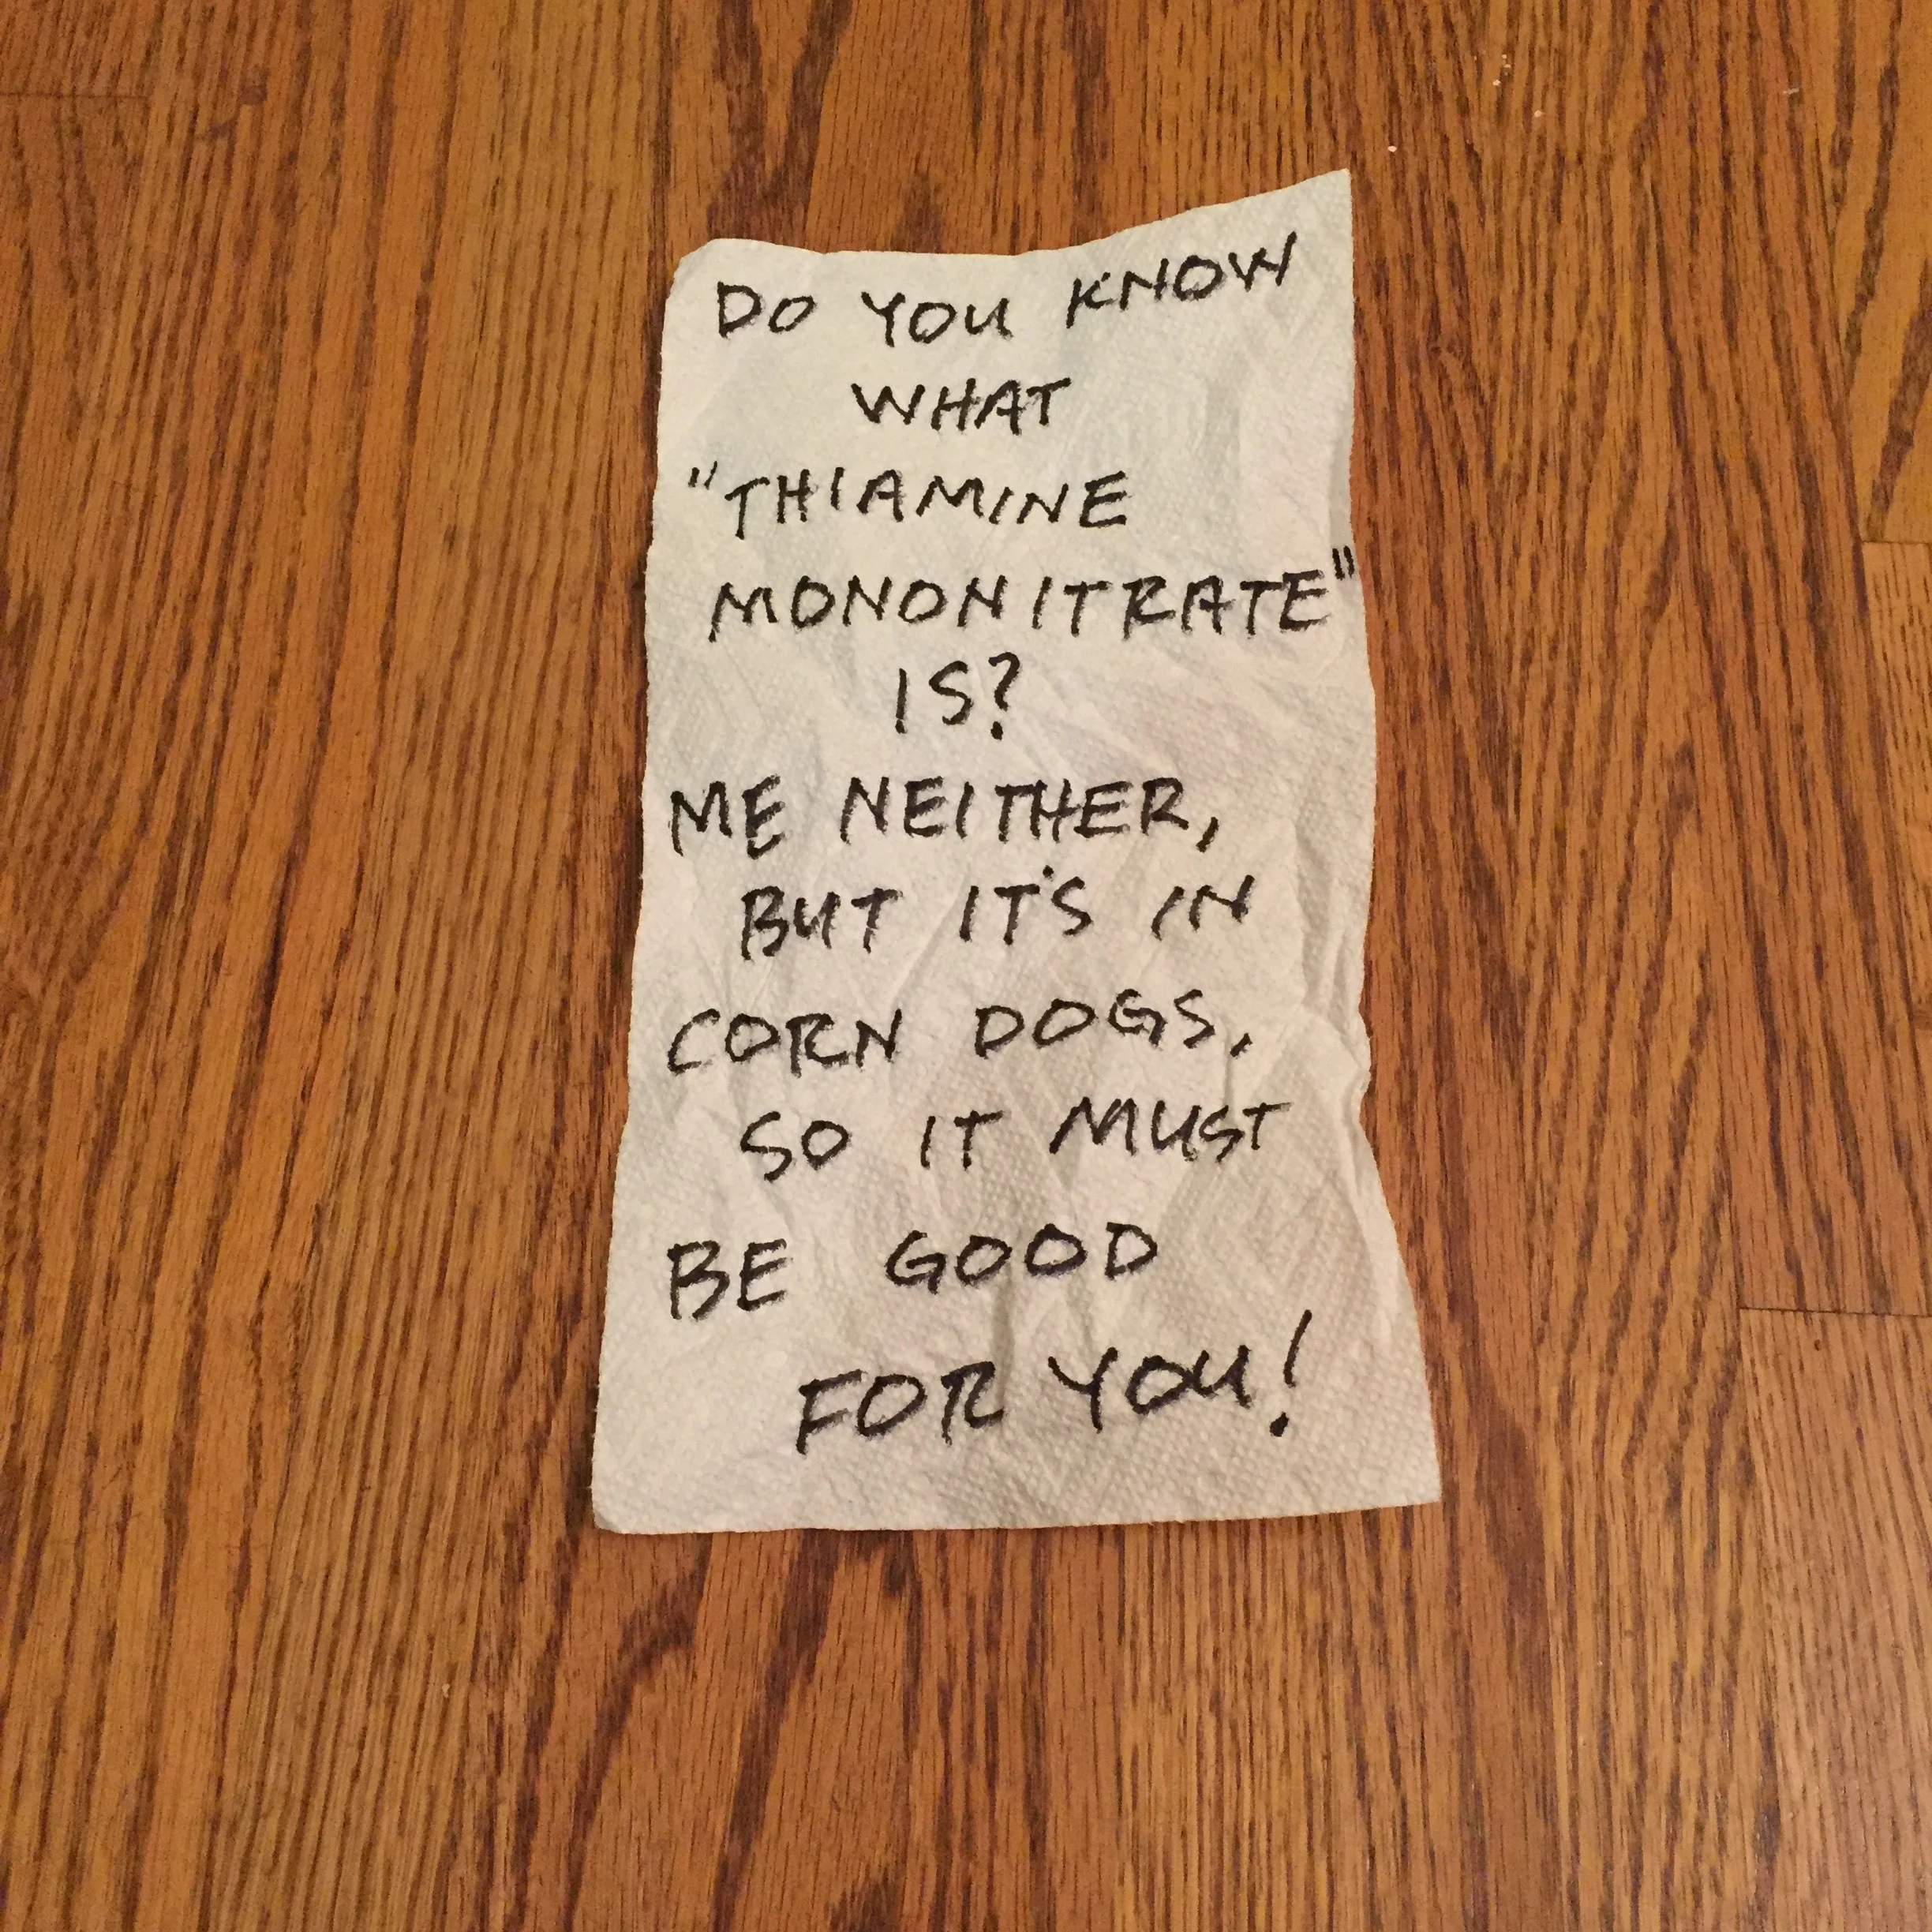 DO YOU KNOW
WHAT
"THIAMINE
MONONITRATE"
IS?
ME NEITHER,
BUT IT'S IN
CORN DOGS,
SO IT MUST
BE GOOD
FOR YOU!